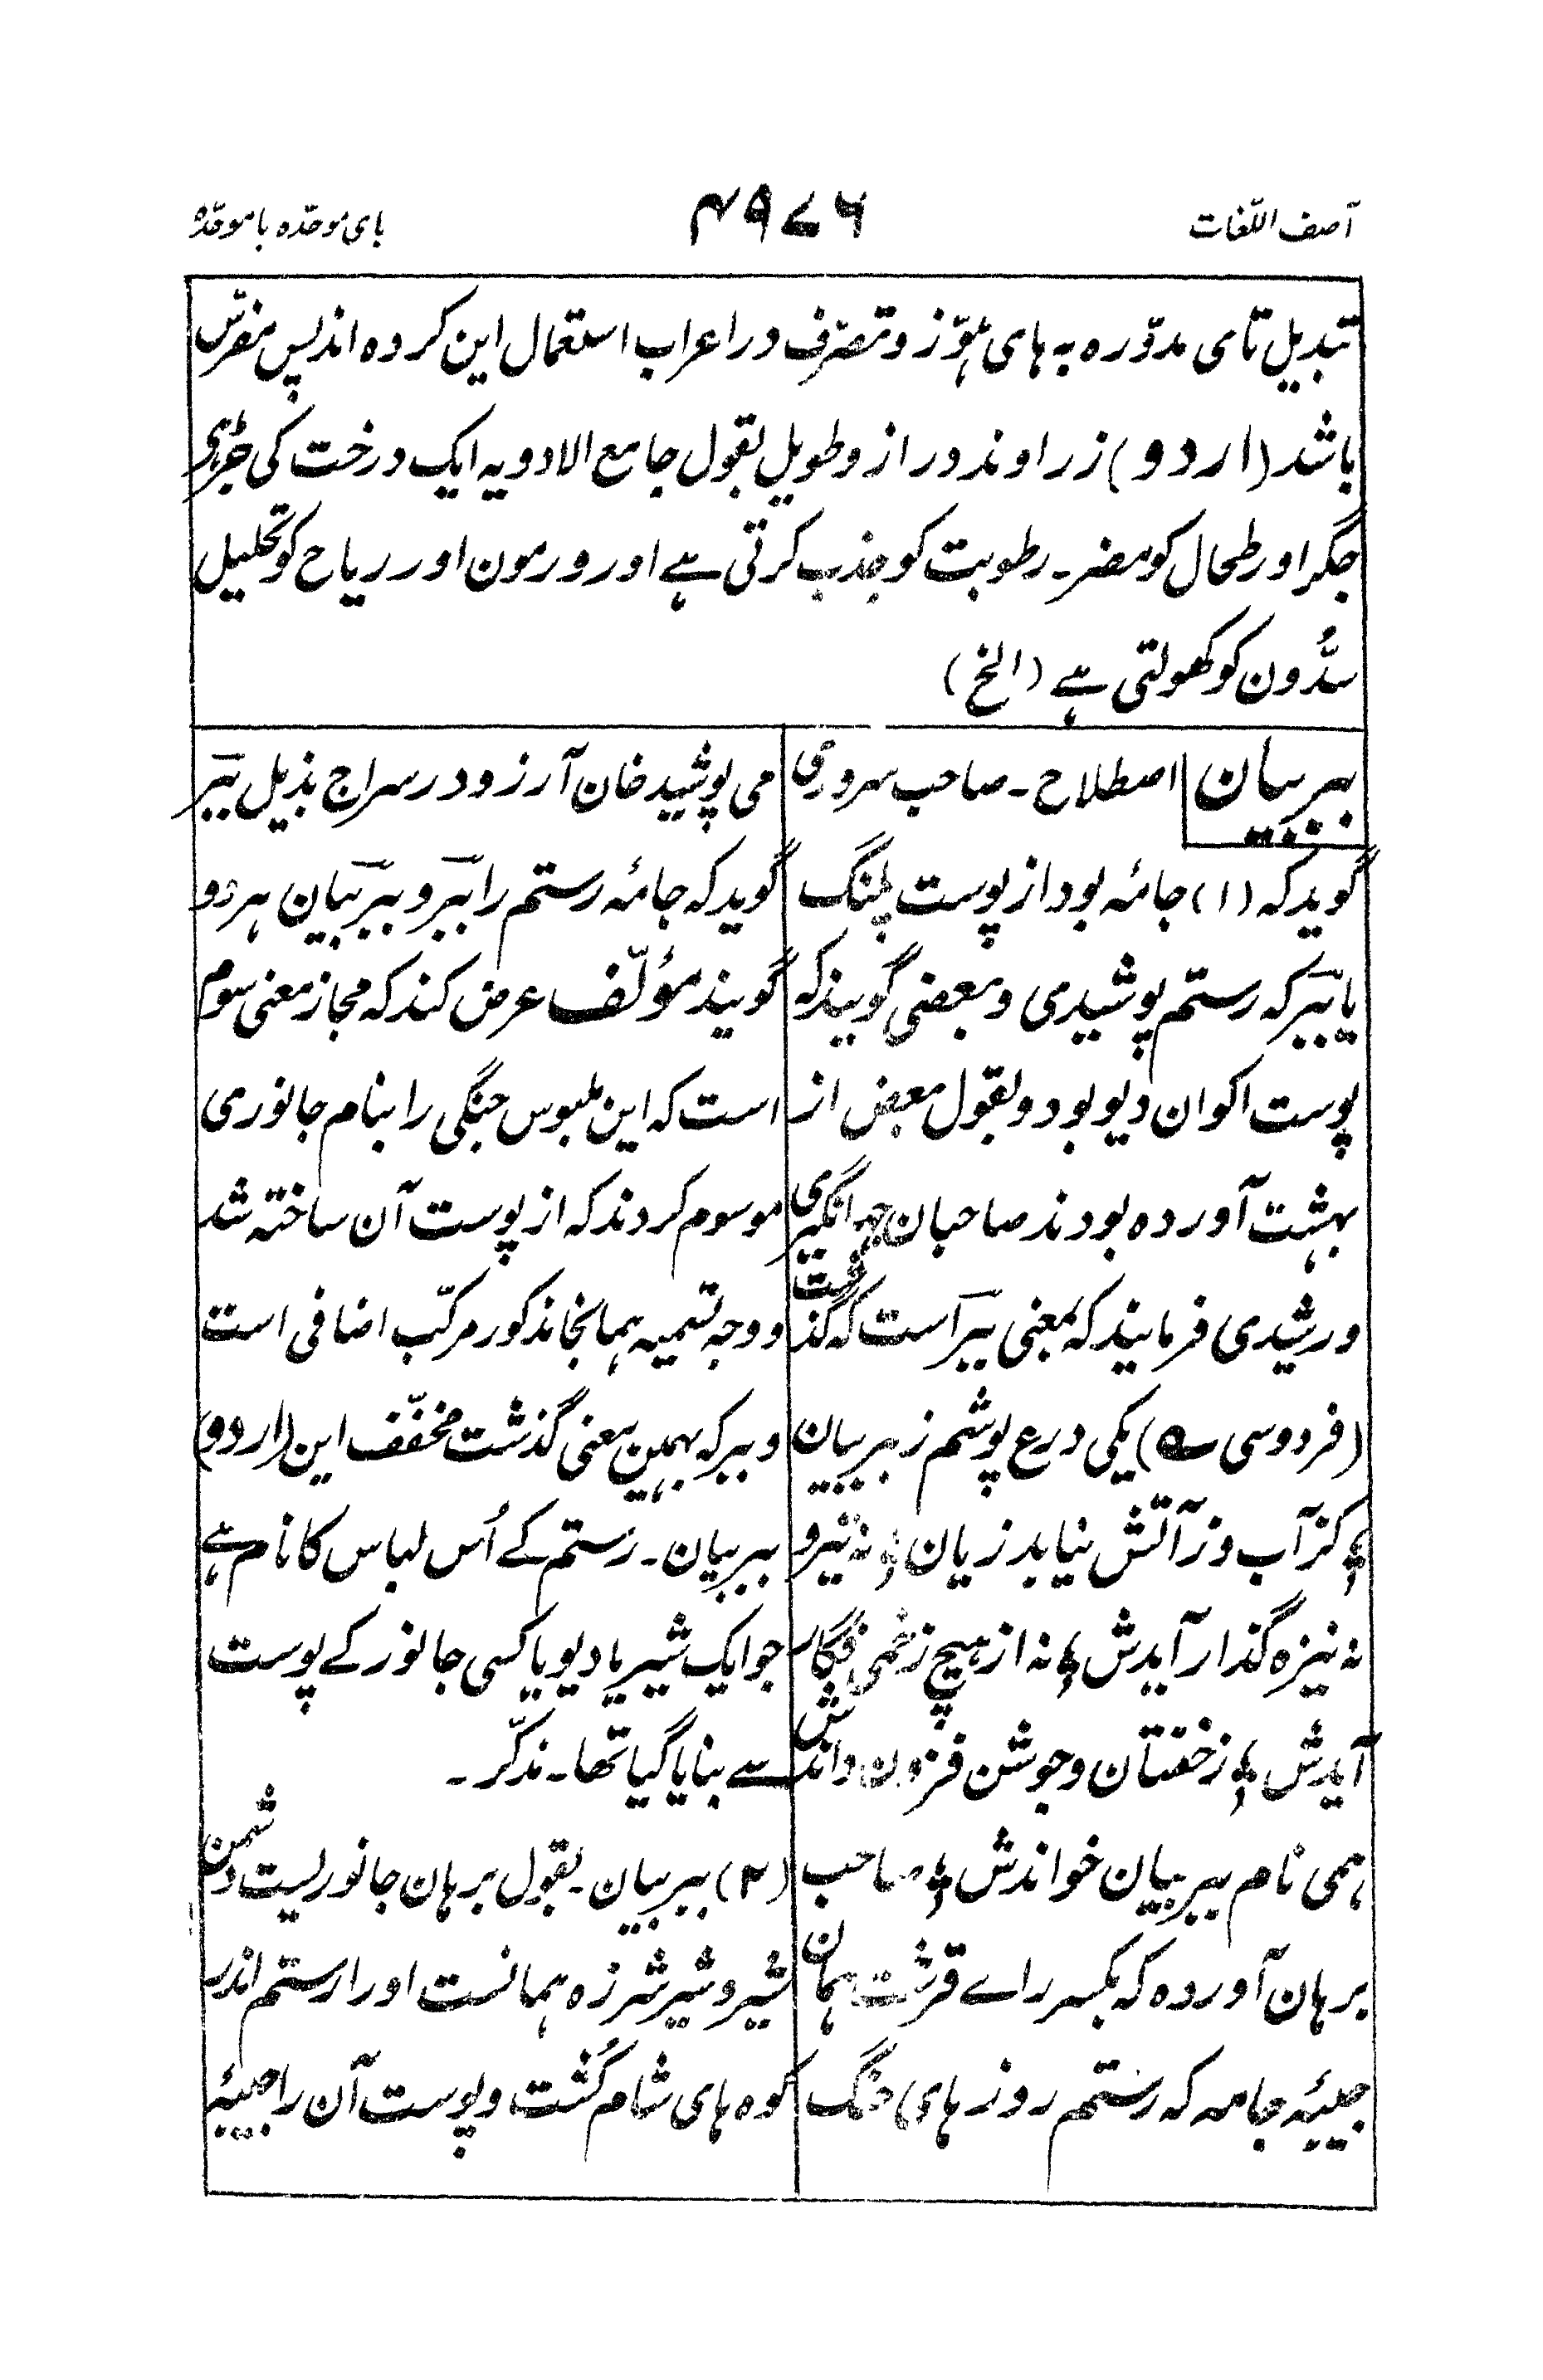 آصف اللّغات
۴۹۷۶
بای موحّدہ با موحّدہ
تبدیل تای مدوّرہ بہ ہای ہوّز و تصرّف در اعراب استعمال این کردہ اند پس مفرّس
باشد (اردو) زراوند دراز و طویل بقول جامع الادویہ ایک درخت کی جڑ ہی
جگر اور طحال کو مضر۔ رطوبت کو جذب کرتی ہے اور ورمون اور ریاح کو تحلیل
سُدّون کو کھولتی ہے (الخ)
ببربیان اصطلاح۔ صاحب سروری
گوید کہ (۱) جامۂ بود از پوست پلنگ
یا ببر کہ رستم پوشیدی و بعضی گویند کہ
پوست اکوان دیو بود و بقول بعض از
بہشت آوردہ بودند صاحبان جہانگیری
و رشیدی فرمایند کہ بمعنی ببر است کہ گذشت
(فردوسی ؎) یکی درع پوشم ز ببر بیان
؛ کز آب وز آتش نیابد زیان ؛ نہ تیر و
نہ نیزہ گذار آیدش ؛ نہ از ہیچ زخمی فگار
آیدش ؛ زخفتان و جوشن فزون دانش
ہمی نام ببر بیان خواندش ؛ صاحب
برہان آوردہ کہ بکسر راے قرشت ہمان
جیبۂ جامہ کہ رستم روز ہای جنگ
می پوشید خان آرزو در سراج بذیل ببر
گوید کہ جامۂ رستم را ببر و ببر بیان ہر دو
گویند مؤلّف عرض کند کہ مجاز معنی سوم
است کہ این ملبوس جنگی را بنام جانوری
موسوم کردند کہ از پوست آن ساختہ شد
و وجہ تسمیہ ہمانجا مذکور مرکّب اضافی است
و ببر کہ بہمین معنی گذشت مخفّف این (اردو)
ببر بیان۔ رستم کے اُس لباس کا نام ہے
جو ایک شیر یا دیو یا کسی جانور کے پوست
سے بنایا گیا تھا۔ مذکّر۔
(۲) ببر بیان۔ بقول برہان جانوریست دشمن
شیر و شیر شرزہ ہمانست او را رستم اندر
کوہ ہای شام کُشت و پوست آن را جیبۂ